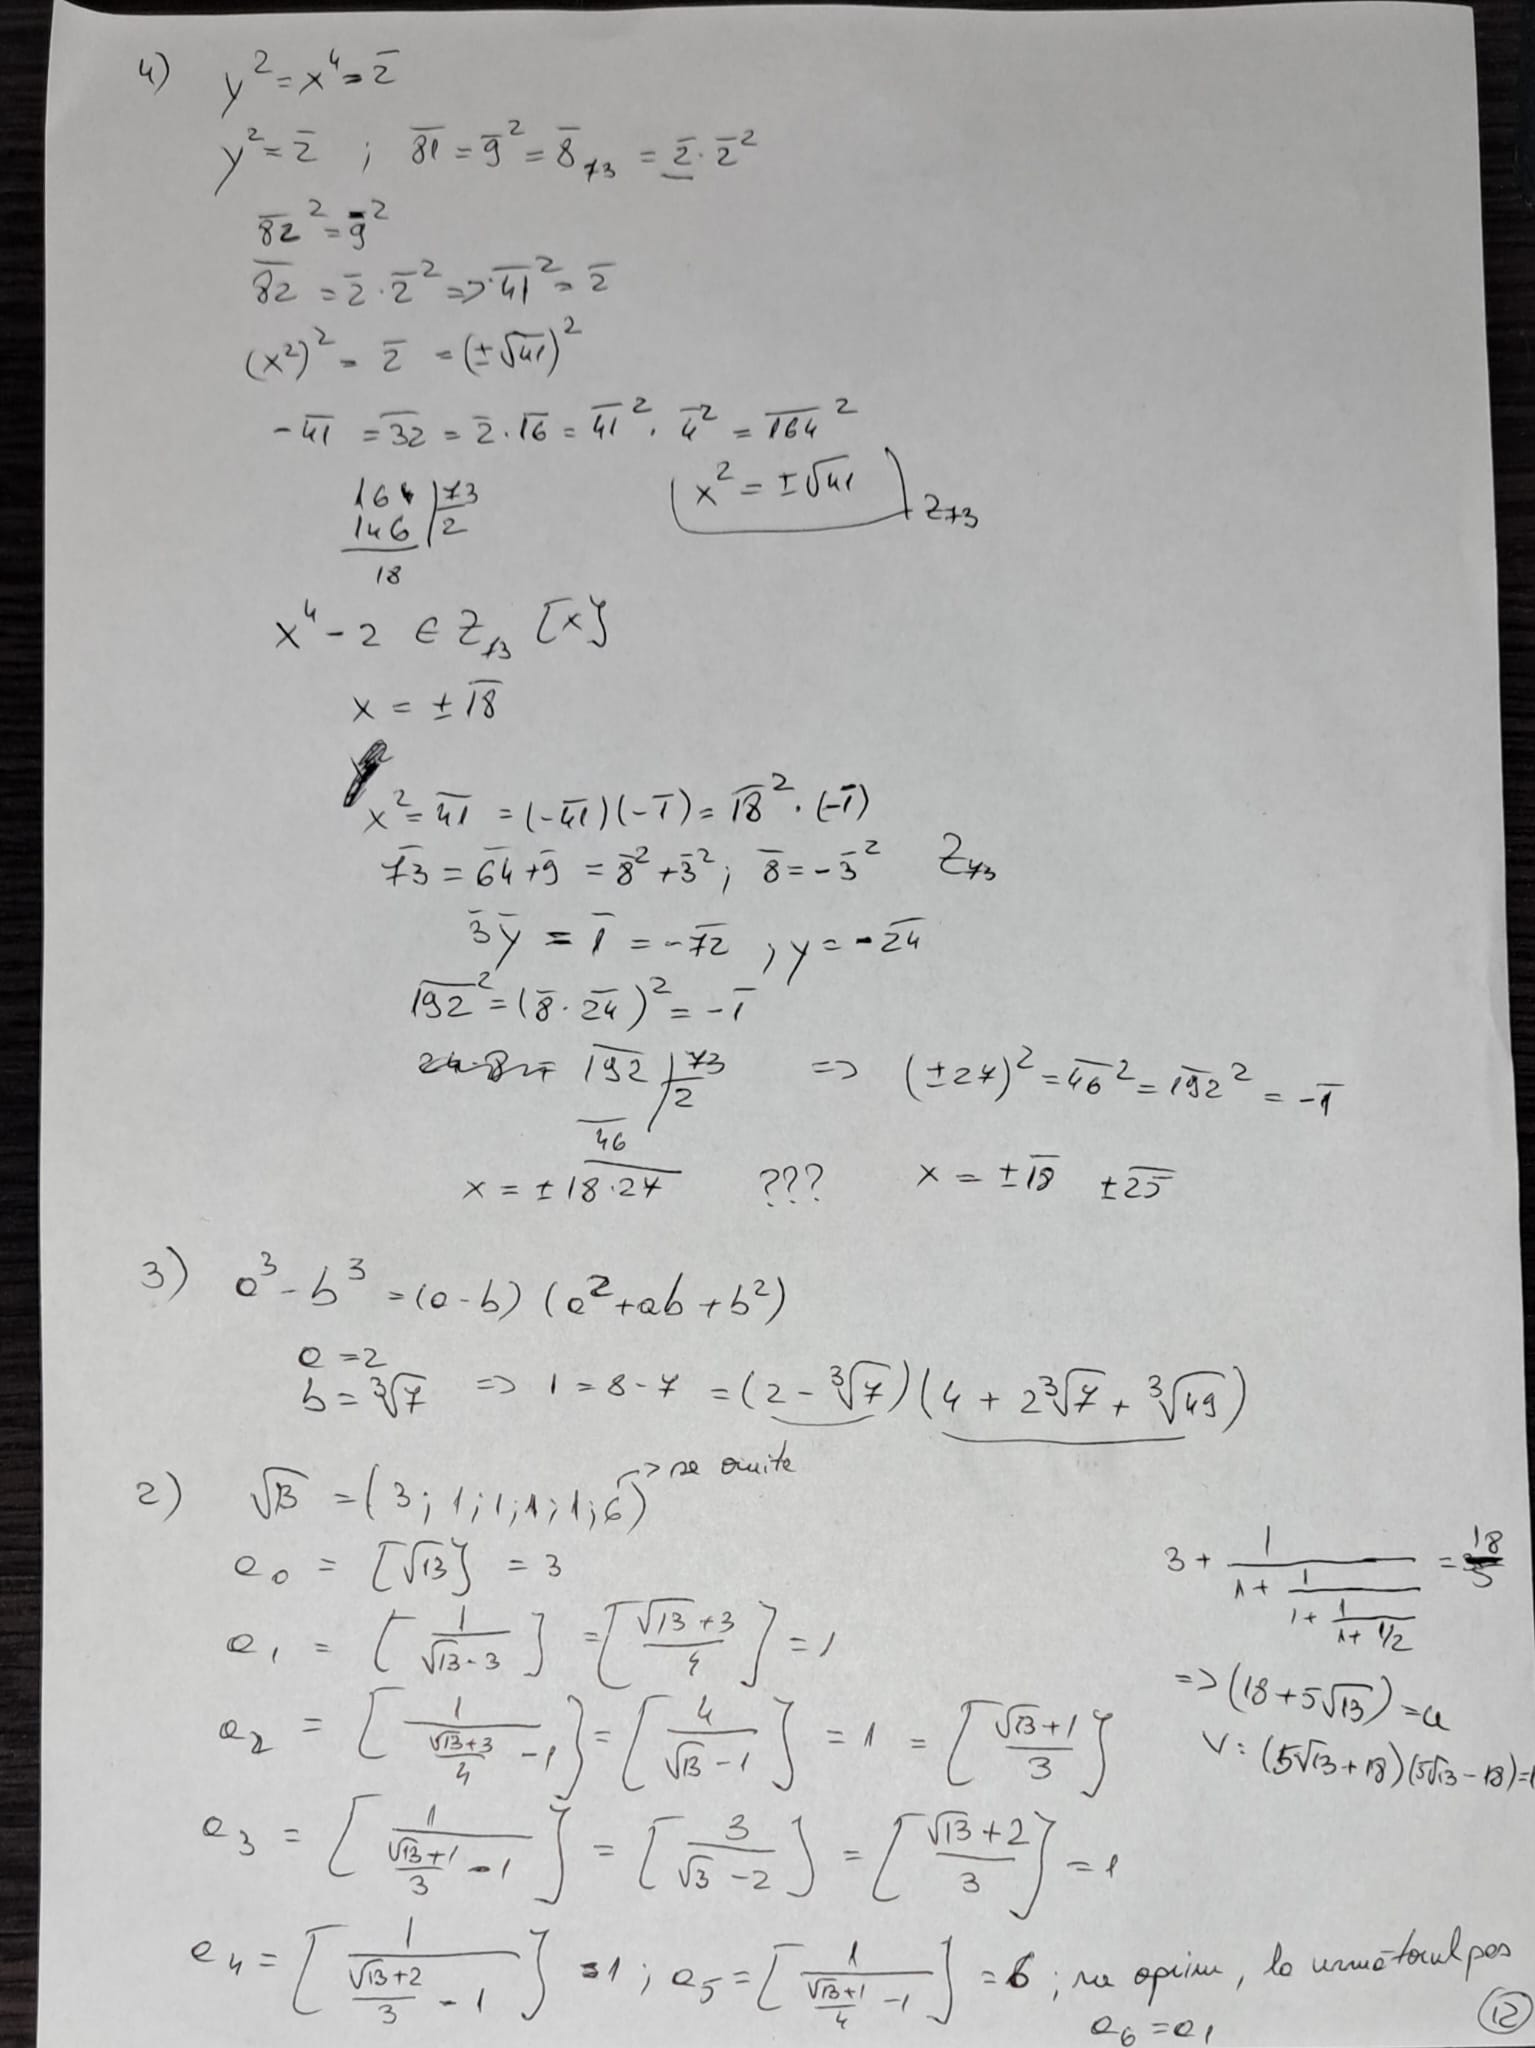 4) y² = x⁴ = 2̅
y² = 2̅ ; 8̅1̅ = 9̅² = 8̅ ₇₃ = 2̅ · 2̅²
8̅2̅² = 9̅²
8̅2̅ = 2̅ · 2̅² => 4̅1̅² = 2̅
(x²)² = 2̅ = (±√41)²
-4̅1̅ = 3̅2̅ = 2̅ · 1̅6̅ = 4̅1̅² · 4̅² = 1̅6̅4̅²
164 | 73
146 | 2
18
x² = ±√41 Z₇₃
x⁴ - 2 ∈ Z₇₃ [x]
x = ±1̅8̅
x² = 4̅1̅ = (-4̅1̅)(-1̅) = 1̅8̅² · (-1̅)
7̅3̅ = 6̅4̅ + 9̅ = 8̅² + 3̅² ; 8̅ = -3̅² Z₇₃
3̅y̅ = 1̅ = -7̅2̅ , y = -2̅4̅
1̅9̅2̅² = (8̅ · 2̅4̅)² = -1̅
192 | 73 => (±27)² = 4̅6̅² = 1̅9̅2̅² = -1̅
2
46
x = ±1̅8̅·̅2̅7̅ ??? x = ±1̅8̅ ±2̅5̅
3) a³ - b³ = (a - b) (a² + ab + b²)
a = 2
b = ∛7 => 1 = 8 - 7 = (2 - ∛7)(4 + 2∛7 + ∛49)
2) √13 = (3; 1; 1; 1; 1; 6) -> se omite
a₀ = [√13] = 3
a₁ = [1/(√13 - 3)] = [(√13 + 3)/4] = 1
a₂ = [1/((√13 + 3)/4 - 1)] = [4/(√13 - 1)] = 1 = [(√13 + 1)/3]
a₃ = [1/((√13 + 1)/3 - 1)] = [3/(√3 - 2)] = [(√13 + 2)/3] = 1
a₄ = [1/((√13 + 2)/3 - 1)] = 1 ; a₅ = [1/((√13 + 1)/4 - 1)] = 6 ; ne oprim, la următorul pas
a₆ = a₁
3 + 1/(1 + 1/(1 + 1/(1 + 1/2))) = 18/5
=> (18 + 5√13) = u
V: (5√13 + 18)(5√13 - 18) = 1
12